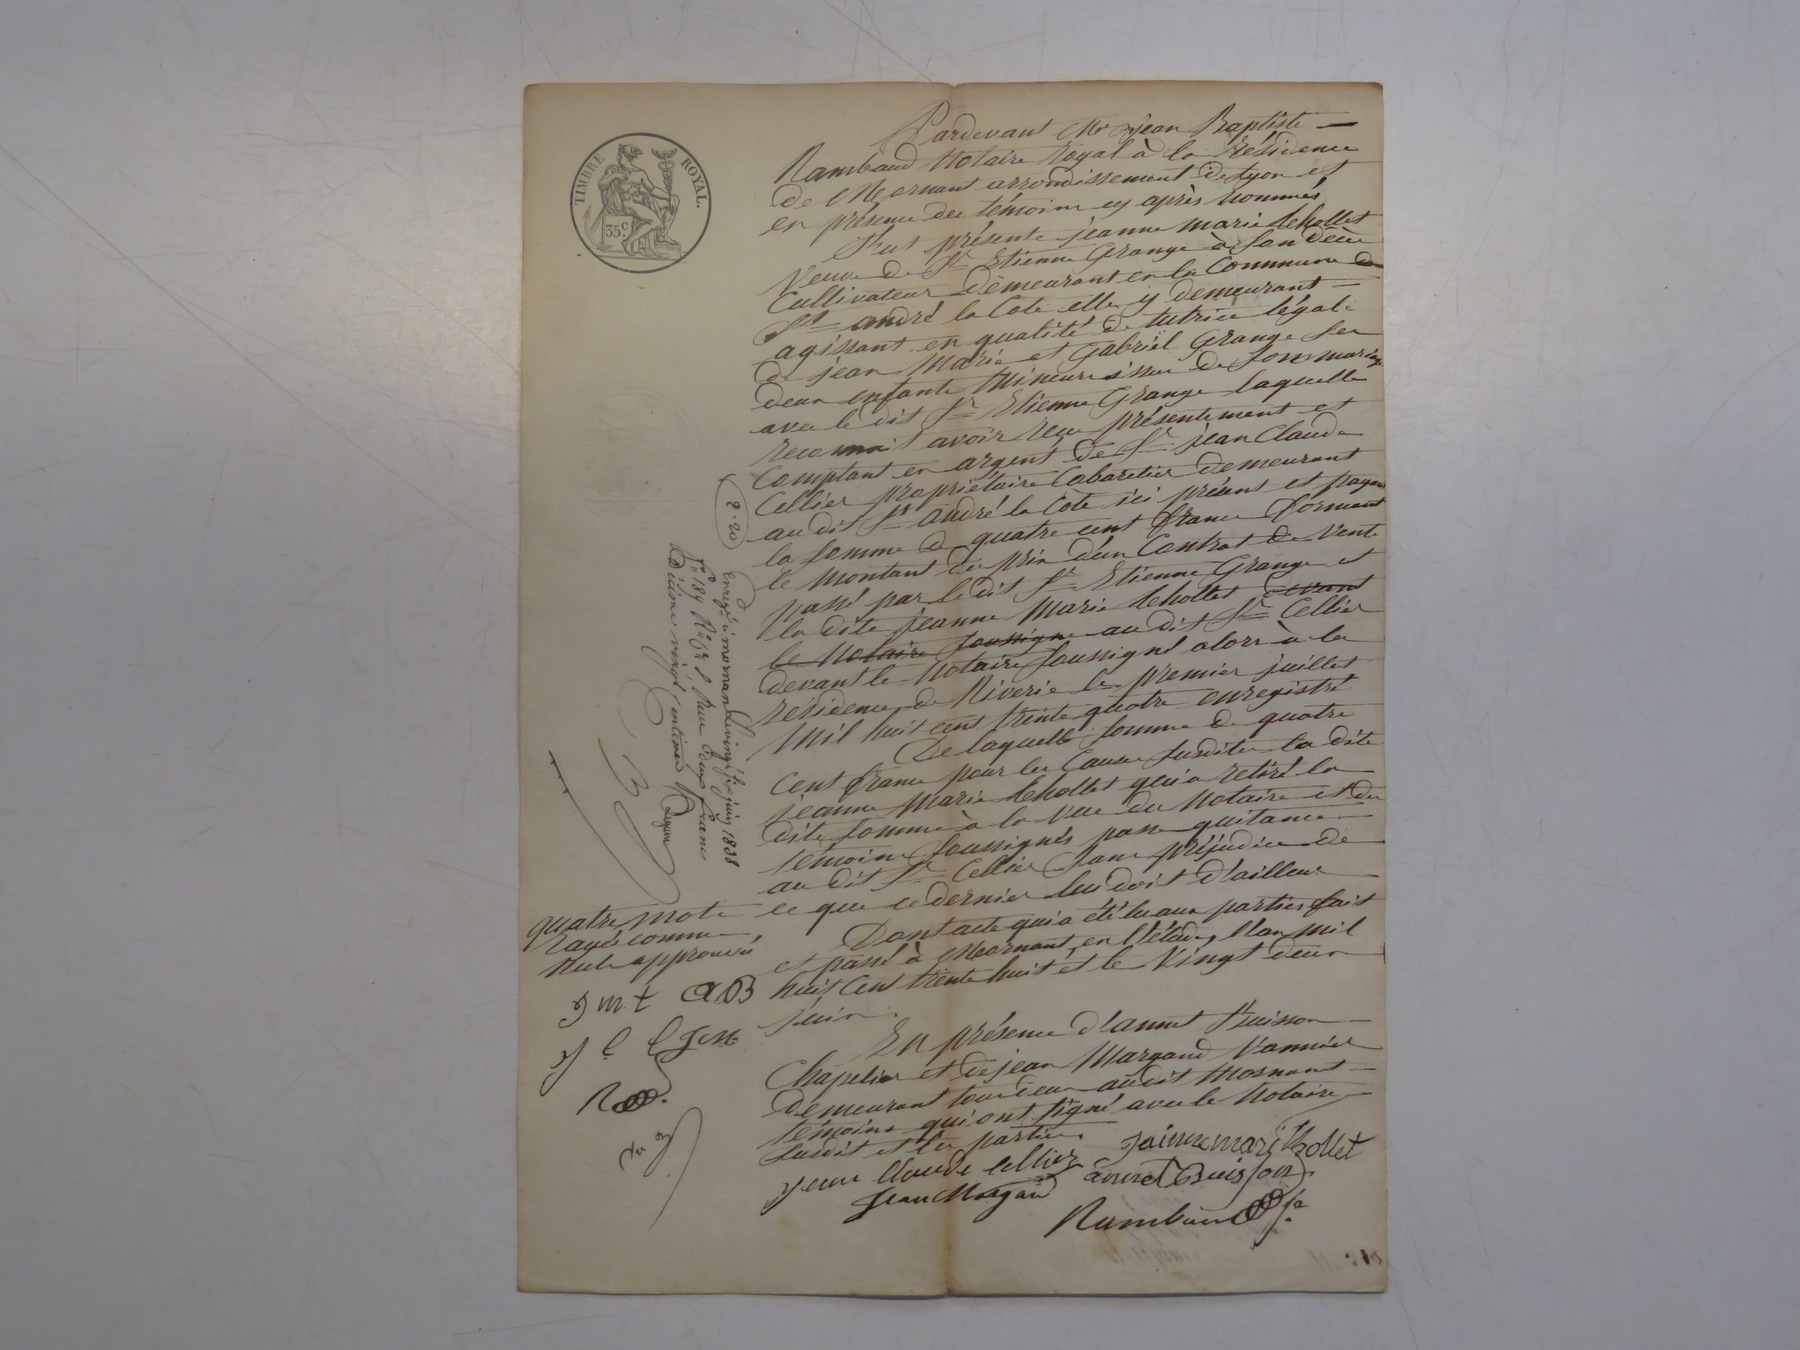 TIMBRE ROYAL.
35c
Pardevant Me jean Baptiste
Rambaud Notaire Royal à la résidence
de Mornant arrondissement de Lyon et
en présence des témoins cy après nommés
Fut présente jeanne marie thollet
Veuve de Sr Etienne Grange à son décès
Cultivateur demeurant en la Commune de
St andré la Cote elle y demeurant
agissant en qualité de tutrice légale
de jean Marie et Gabriël Grange ses
deux enfants Mineurs issus de son mariage
avec le dit Sr Etienne Grange laquelle
reconnait avoir reçu présentement et
Comptant en argent de Sr jean Claude
Cellier propriétaire Cabaretier demeurant
au dit St andré la Cote ici présent et payant
la somme de quatre cent francs formant
le montant du prix d'un Contrat de Vente
passé par le dit Sr Etienne Grange et
la dite jeanne Marie thollet devant
le Notaire soussigné au dit Sr Cellier
devant le Notaire soussigné alors à la
résidence de Riverie le premier juillet
Mil huit cent trente quatre enregistré
De laquelle somme de quatre
Cent francs pour les Causes susdites la dite
jeanne Marie thollet qui a retiré la
dite somme à la Vue du Notaire et des
témoins soussignés passe quitance
au dit Sr Cellier sans préjudice de
ce que ce dernier lui doit d'ailleurs
Dont acte qui a été lu aux parties fait
et passé à Mornant en l'étude, l'an mil
huit Cent trente huit et le Vingt deux
juin.
En présence d'annet Buisson
Chapelier et de jean Margand Vannier
demeurant tous deux audit Mornant
témoins qui ont signé avec le Notaire
susdit et les parties.
jaine mari thollet
jean Claude Cellier
annet Buisson
Jean Margand
Rambaud
2.20
enregé à mornant le vingt six juin 1838
fo 189 Ro Reçu deux francs
Décime vingt centimes
quatre mots
rayés comme
nuls approuvés
j m t a B
j C
R